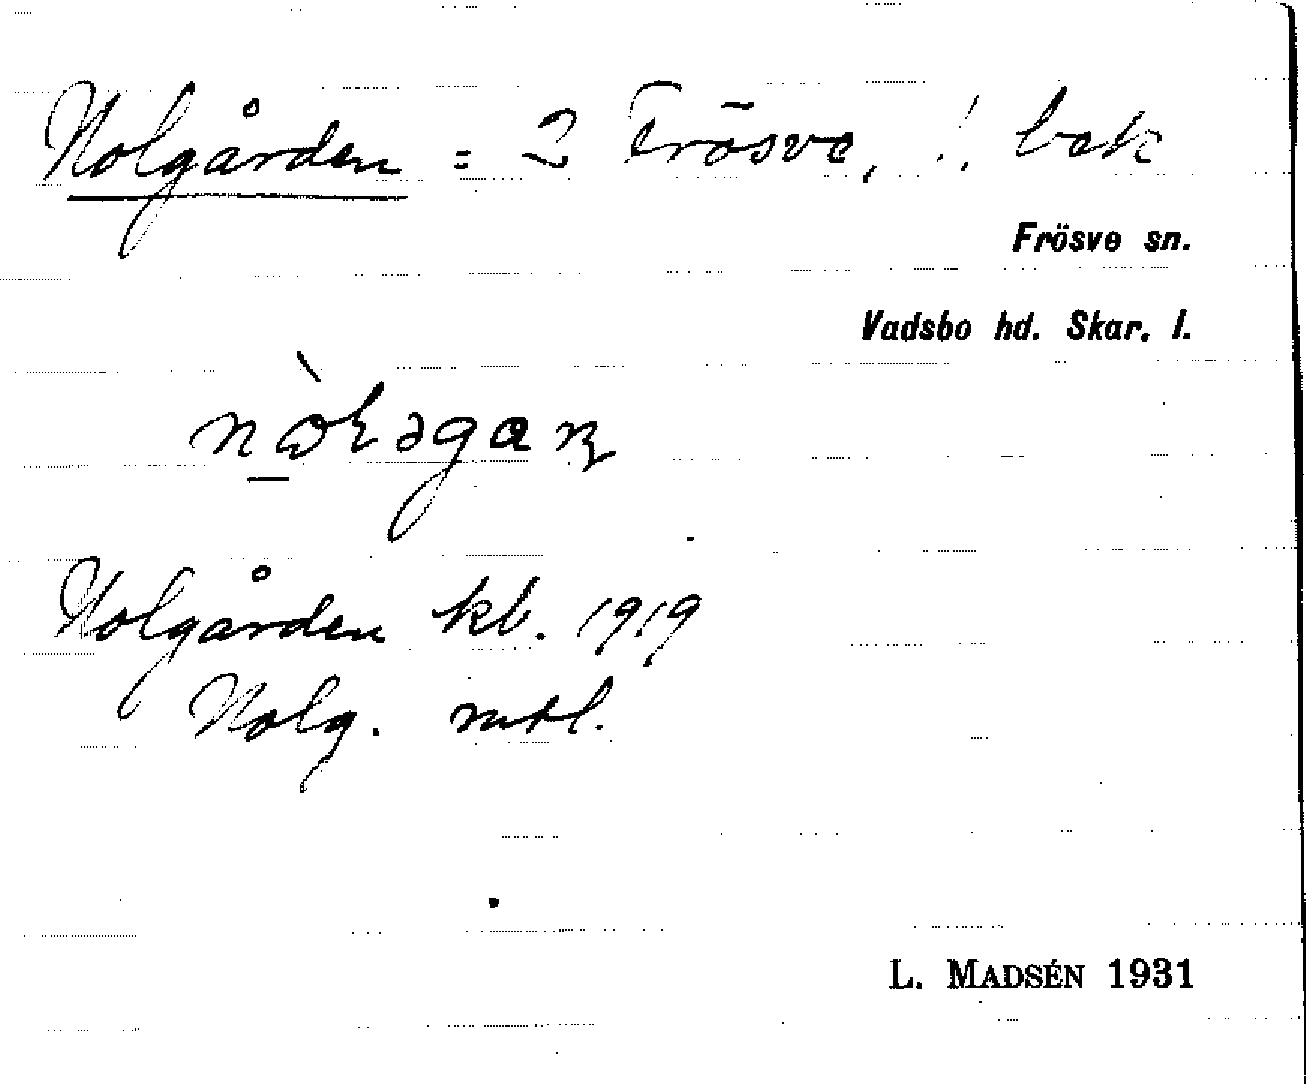 Nolgården = 2 Frösve, ! bok
Frösve sn.
Vadsbo hd. Skar. l.
Nolgården kb. 1919
Nolg. mtl.
L. MADSÉN 1931